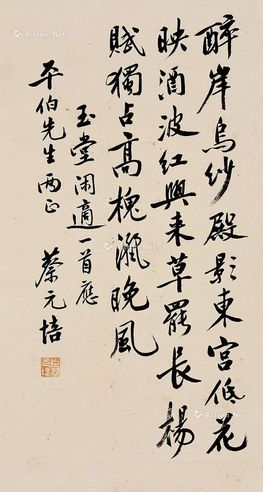 醉岸烏紗殿影東宮低花
映酒波紅興来草罷長楊
賦獨占高槐灑晚風
玉堂閑適一首應
平伯先生兩正
蔡元培